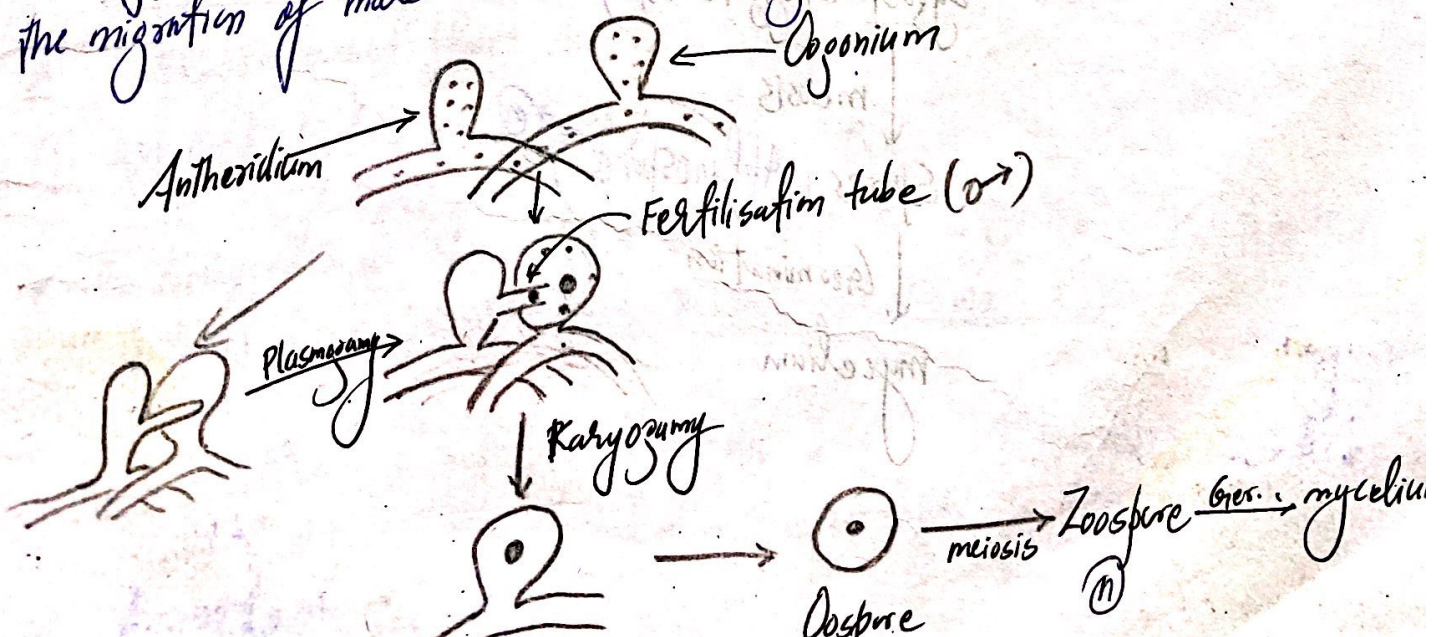 the migration of
Oogonium
Antheridium
Fertilisation tube (♂)
Plasmogamy
Karyogamy
meiosis
Zoospore
Ger..
myceliu
n
Oospore